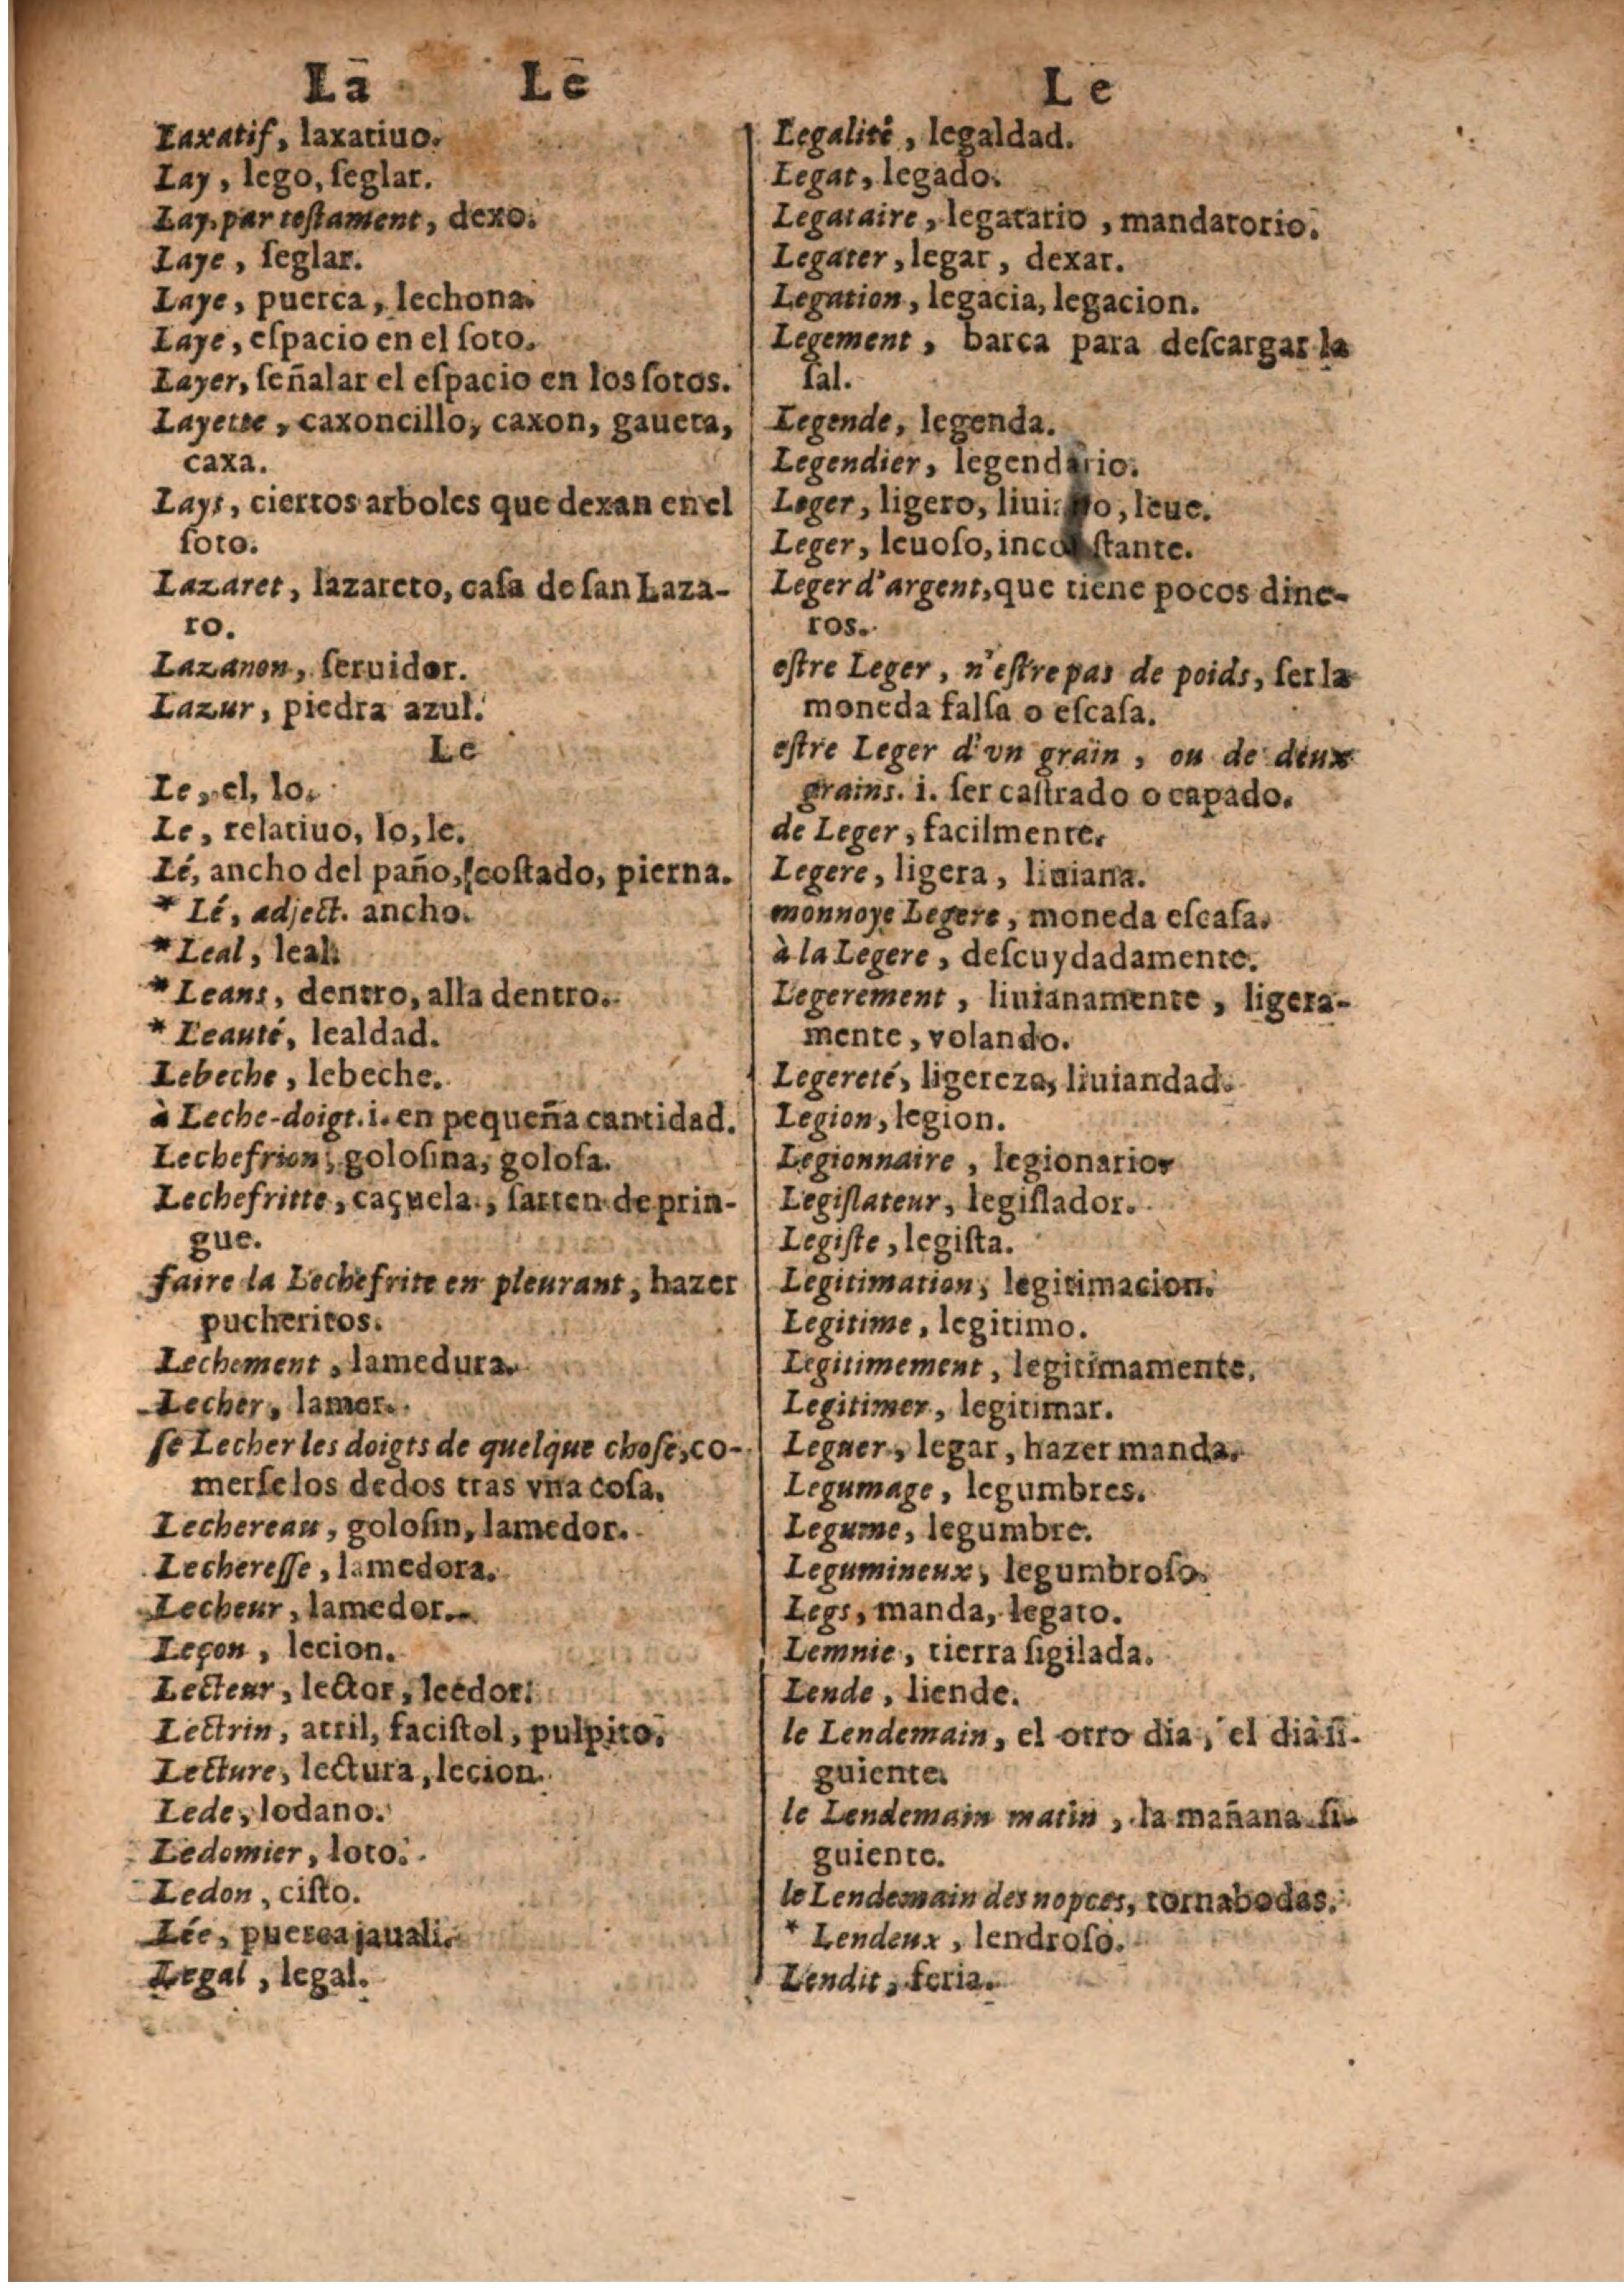 La Le
Laxatif, laxatiuo.
Lay, lego, ſeglar.
Lay, par teſtament, dexo.
Laye, ſeglar.
Laye, puerca, lechona.
Laye, eſpacio en el ſoto.
Layer, ſeñalar el eſpacio en los ſotos.
Layette, caxoncillo, caxon, gaueta,
caxa.
Lays, ciertos arboles que dexan en el
ſoto.
Lazaret, lazareto, caſa de ſan Laza-
ro.
Lazanon, ſeruidor.
Lazur, piedra azul.
Le
Le, el, lo.
Le, relatiuo, lo, le.
Lé, ancho del paño, coſtado, pierna.
* Lé, adject. ancho.
* Leal, leal.
* Leans, dentro, alla dentro.
* Leauté, lealdad.
Lebeche, lebeche.
à Leche-doigt. i. en pequeña cantidad.
Lechefrion, goloſina, goloſa.
Lechefritte, caçuela, ſarten de prin-
gue.
faire la Lechefrite en pleurant, hazer
pucheritos.
Lechement, lamedura.
Lecher, lamer.
ſe Lecher les doigts de quelque choſe, co-
merſe los dedos tras vna coſa.
Lechereau, goloſin, lamedor.
Lechereſſe, lamedora.
Lecheur, lamedor.
Leçon, lecion.
Lecteur, lector, leedor.
Lectrin, atril, faciſtol, pulpito.
Lecture, lectura, lecion.
Lede, lodano.
Ledomier, loto.
Ledon, ciſto.
Lée, puerca jauali.
Legal, legal.
Le
Legalité, legaldad.
Legat, legado.
Legataire, legatario, mandatorio.
Legater, legar, dexar.
Legation, legacia, legacion.
Legement, barca para deſcargar la
ſal.
Legende, legenda.
Legendier, legendario.
Leger, ligero, liuiano, leue.
Leger, leuoſo, inconſtante.
Leger d'argent, que tiene pocos dine-
ros.
eſtre Leger, n'eſtre pas de poids, ſer la
moneda falſa o eſcaſa.
eſtre Leger d'vn grain, ou de deux
grains. i. ſer caſtrado o capado.
de Leger, facilmente.
Legere, ligera, liuiana.
monnoye Legere, moneda eſcaſa.
à la Legere, deſcuydadamente.
Legerement, liuianamente, ligera-
mente, volando.
Legereté, ligereza, liuiandad.
Legion, legion.
Legionnaire, legionario
Legiſlateur, legiſlador.
Legiſte, legiſta.
Legitimation, legitimacion.
Legitime, legitimo.
Legitimement, legitimamente.
Legitimer, legitimar.
Leguer, legar, hazer manda.
Legumage, legumbres.
Legume, legumbre.
Legumineux, legumbroſo.
Legs, manda, legato.
Lemnie, tierra ſigilada.
Lende, liende.
le Lendemain, el otro dia, el dia ſi-
guiente.
le Lendemain matin, la mañana ſi-
guiente.
le Lendemain des nopces, tornabodas.
* Lendeux, lendroſo.
Lendit, feria.